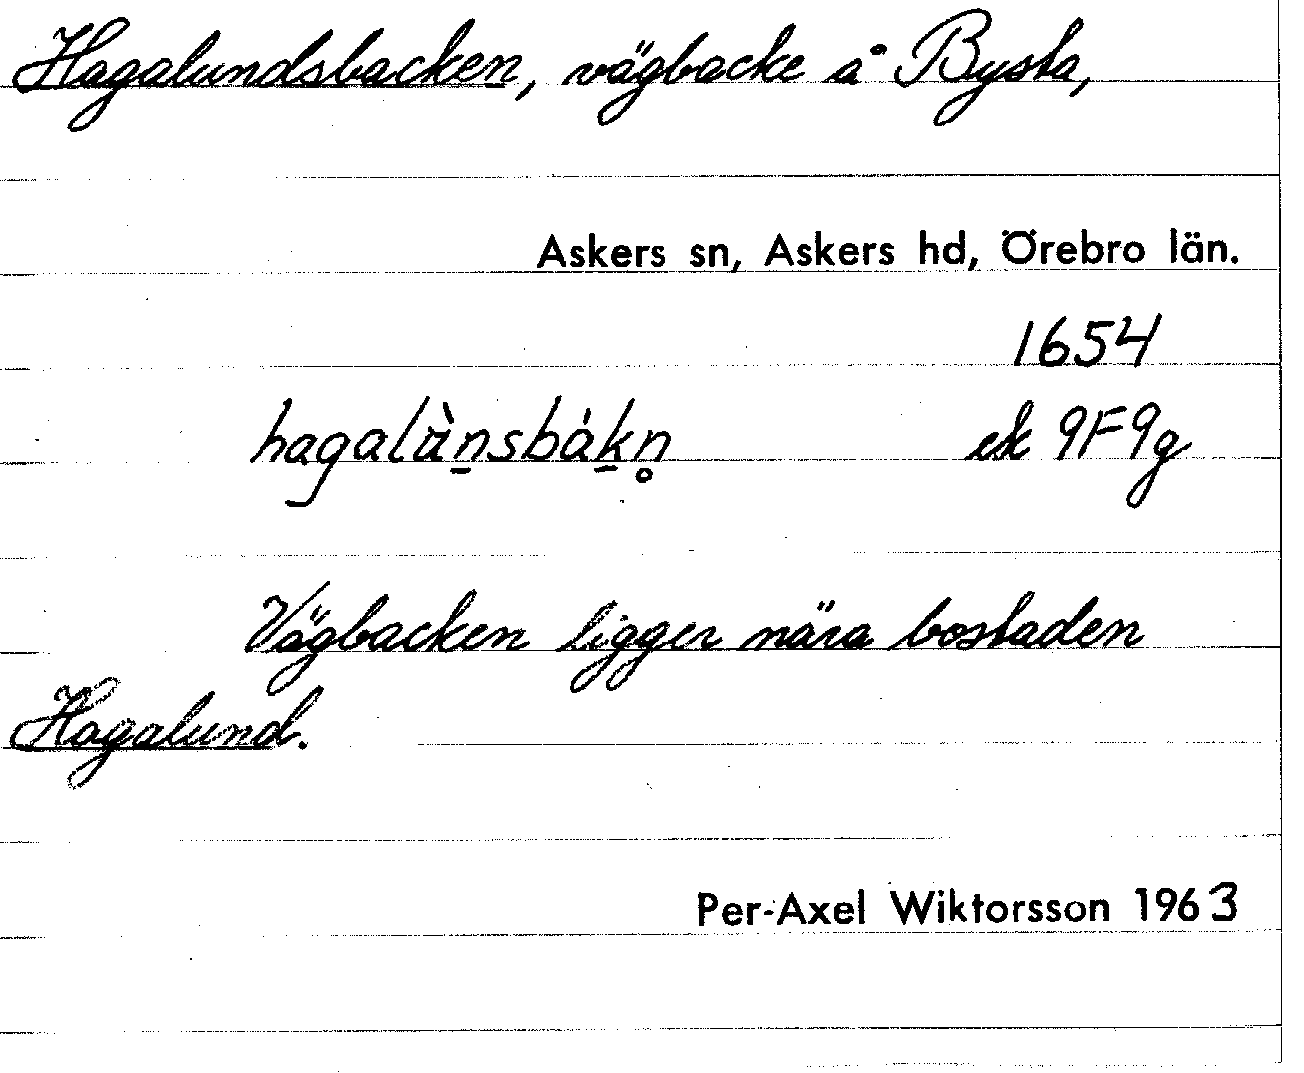 Hagalundsbacken, vägbacke å Bysta,
Askers sn, Askers hd, Örebro län.
1654
hagal`̈ạṉsbáḵn̥ ek 9F9g
Vägbacken ligger nära bostaden
Hagalund.
Per-Axel Wiktorsson 1963